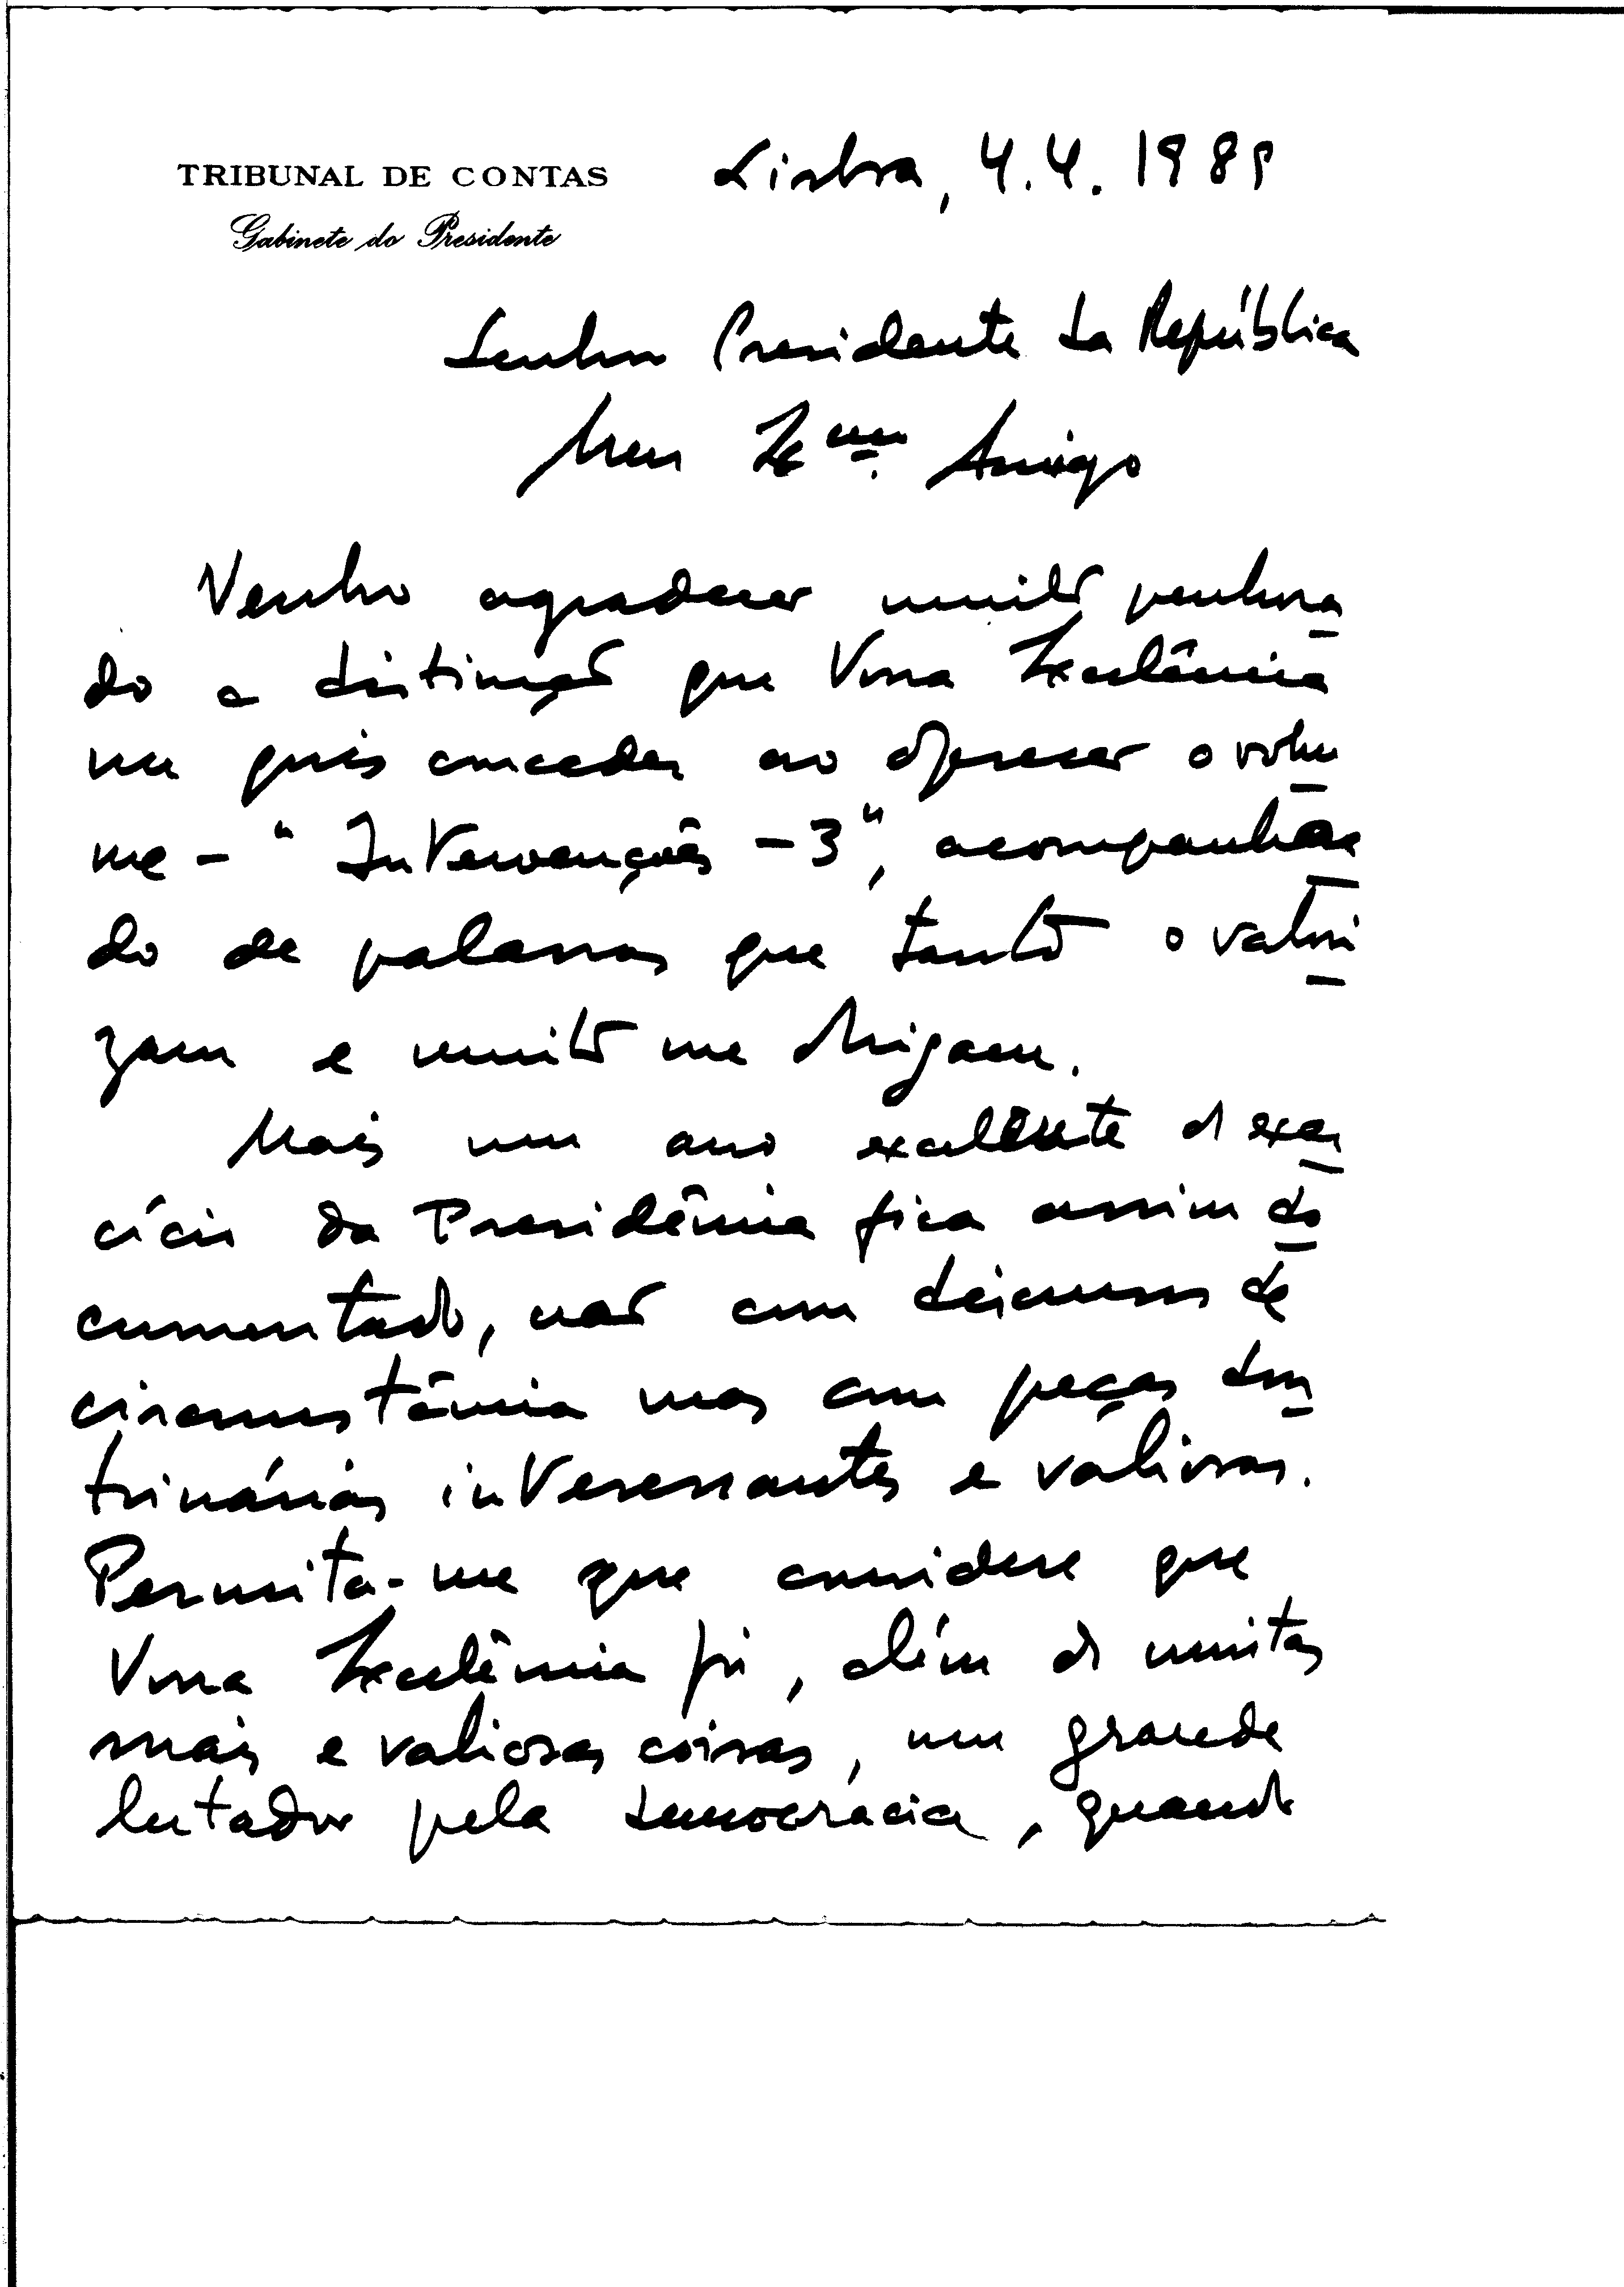 TRIBUNAL DE CONTAS
Gabinete do Presidente
Lisboa, 4.4.1989
Senhor Presidente da República
Meu Exmo. Amigo
Venho agradecer muito penhora
do a distinção que Vossa Excelência
me quis conceder ao oferecer o volu
me - "Intervenções - 3", acompanha
do de palavras que tanto o valori
zam e muito me obrigam.
Mais um ano excelente de exer
cício da Presidência fica assim do
cumentado, não com discursos de
circunstância mas com peças dou
trinárias interessantes e valiosas.
Permita-me que considere que
Vossa Excelência foi, além de muitas
mais e valiosas coisas, um grande
lutador pela democracia, quando